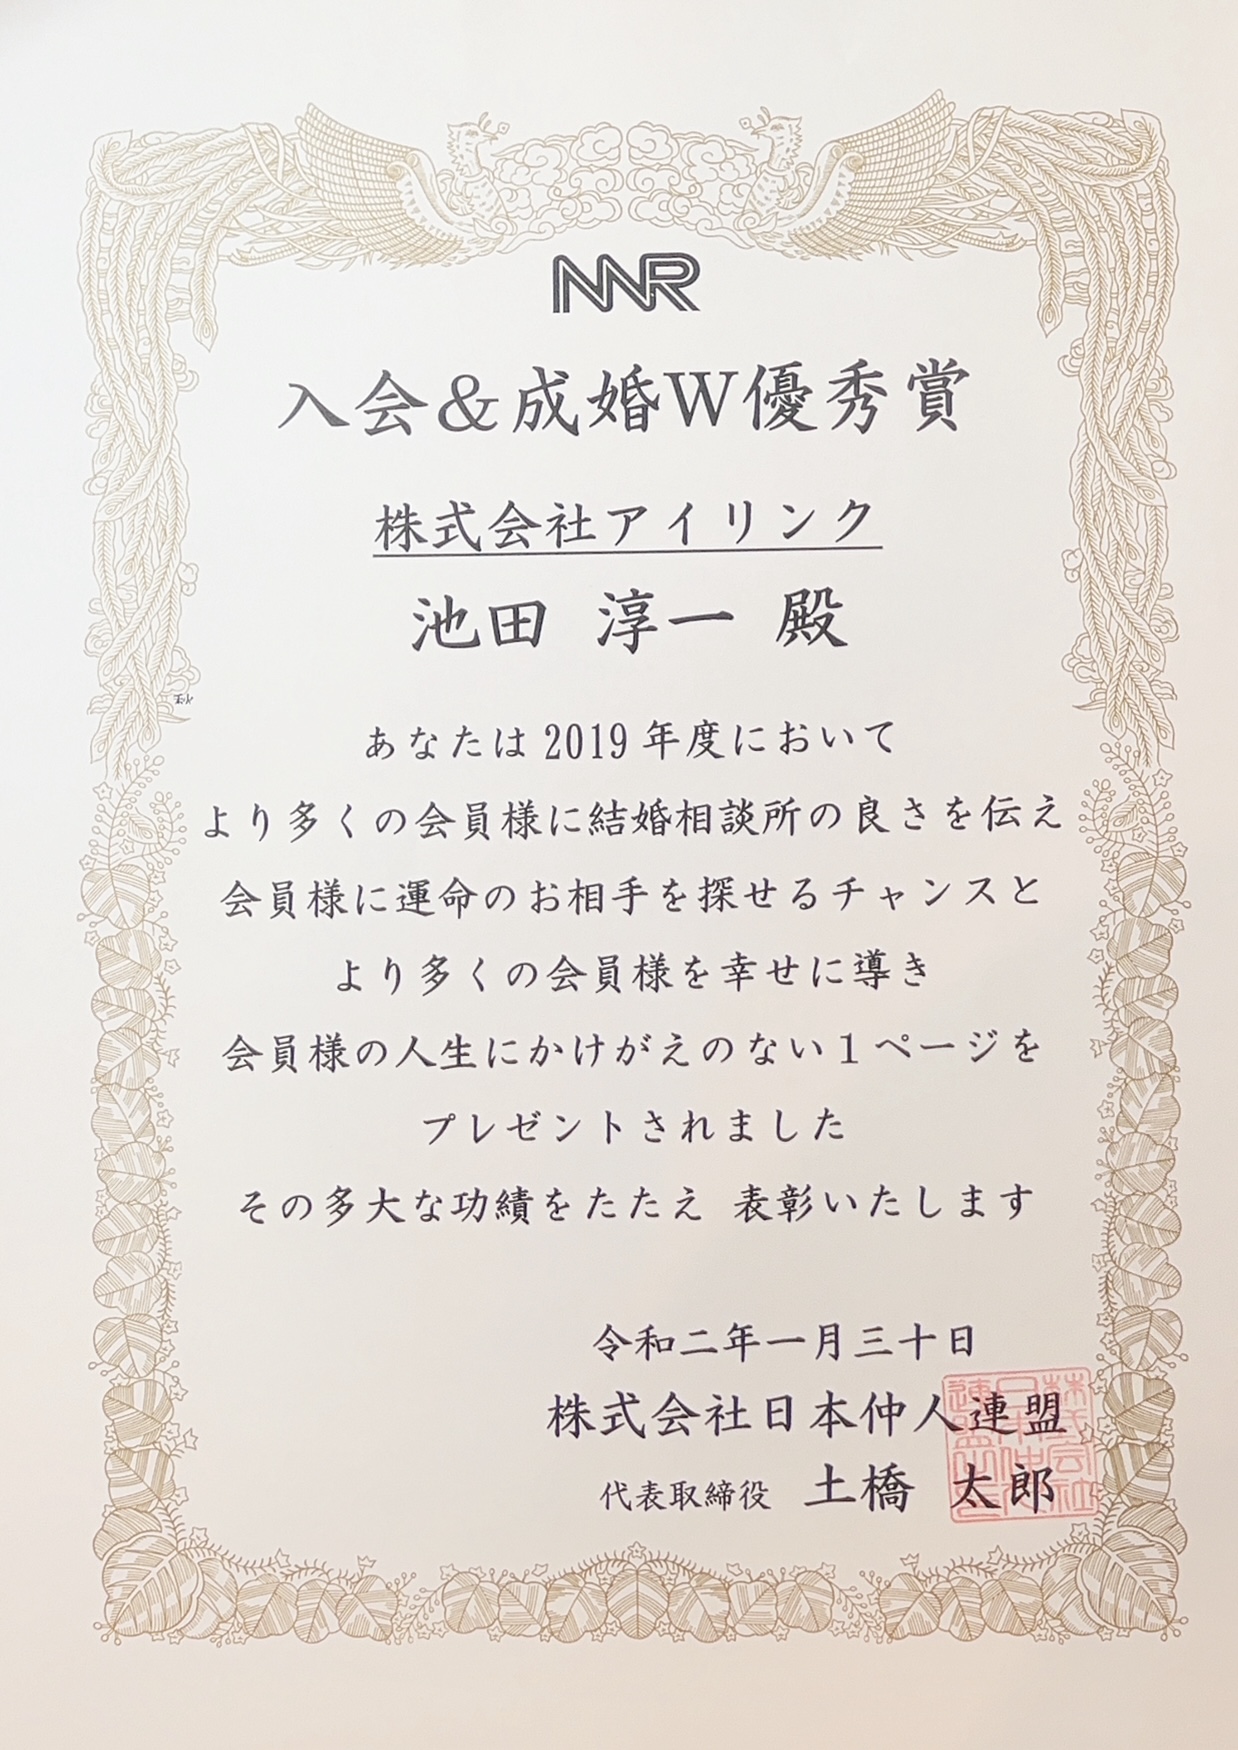 NNR
入会＆成婚W優秀賞
株式会社アイリンク
池田 淳一 殿
あなたは2019年度において
より多くの会員様に結婚相談所の良さを伝え
会員様に運命のお相手を探せるチャンスと
より多くの会員様を幸せに導き
会員様の人生にかけがえのない1ページを
プレゼントされました
その多大な功績をたたえ 表彰いたします
令和二年一月三十日
株式会社日本仲人連盟
代表取締役 土橋 太郎